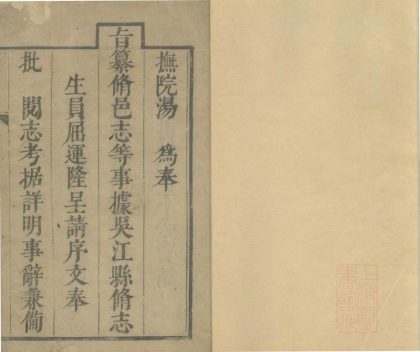 撫院湯　為奉
旨纂脩邑志等事據吳江縣脩志
生員屈運隆呈請序文奉
批　閱志考據詳明事辭兼備